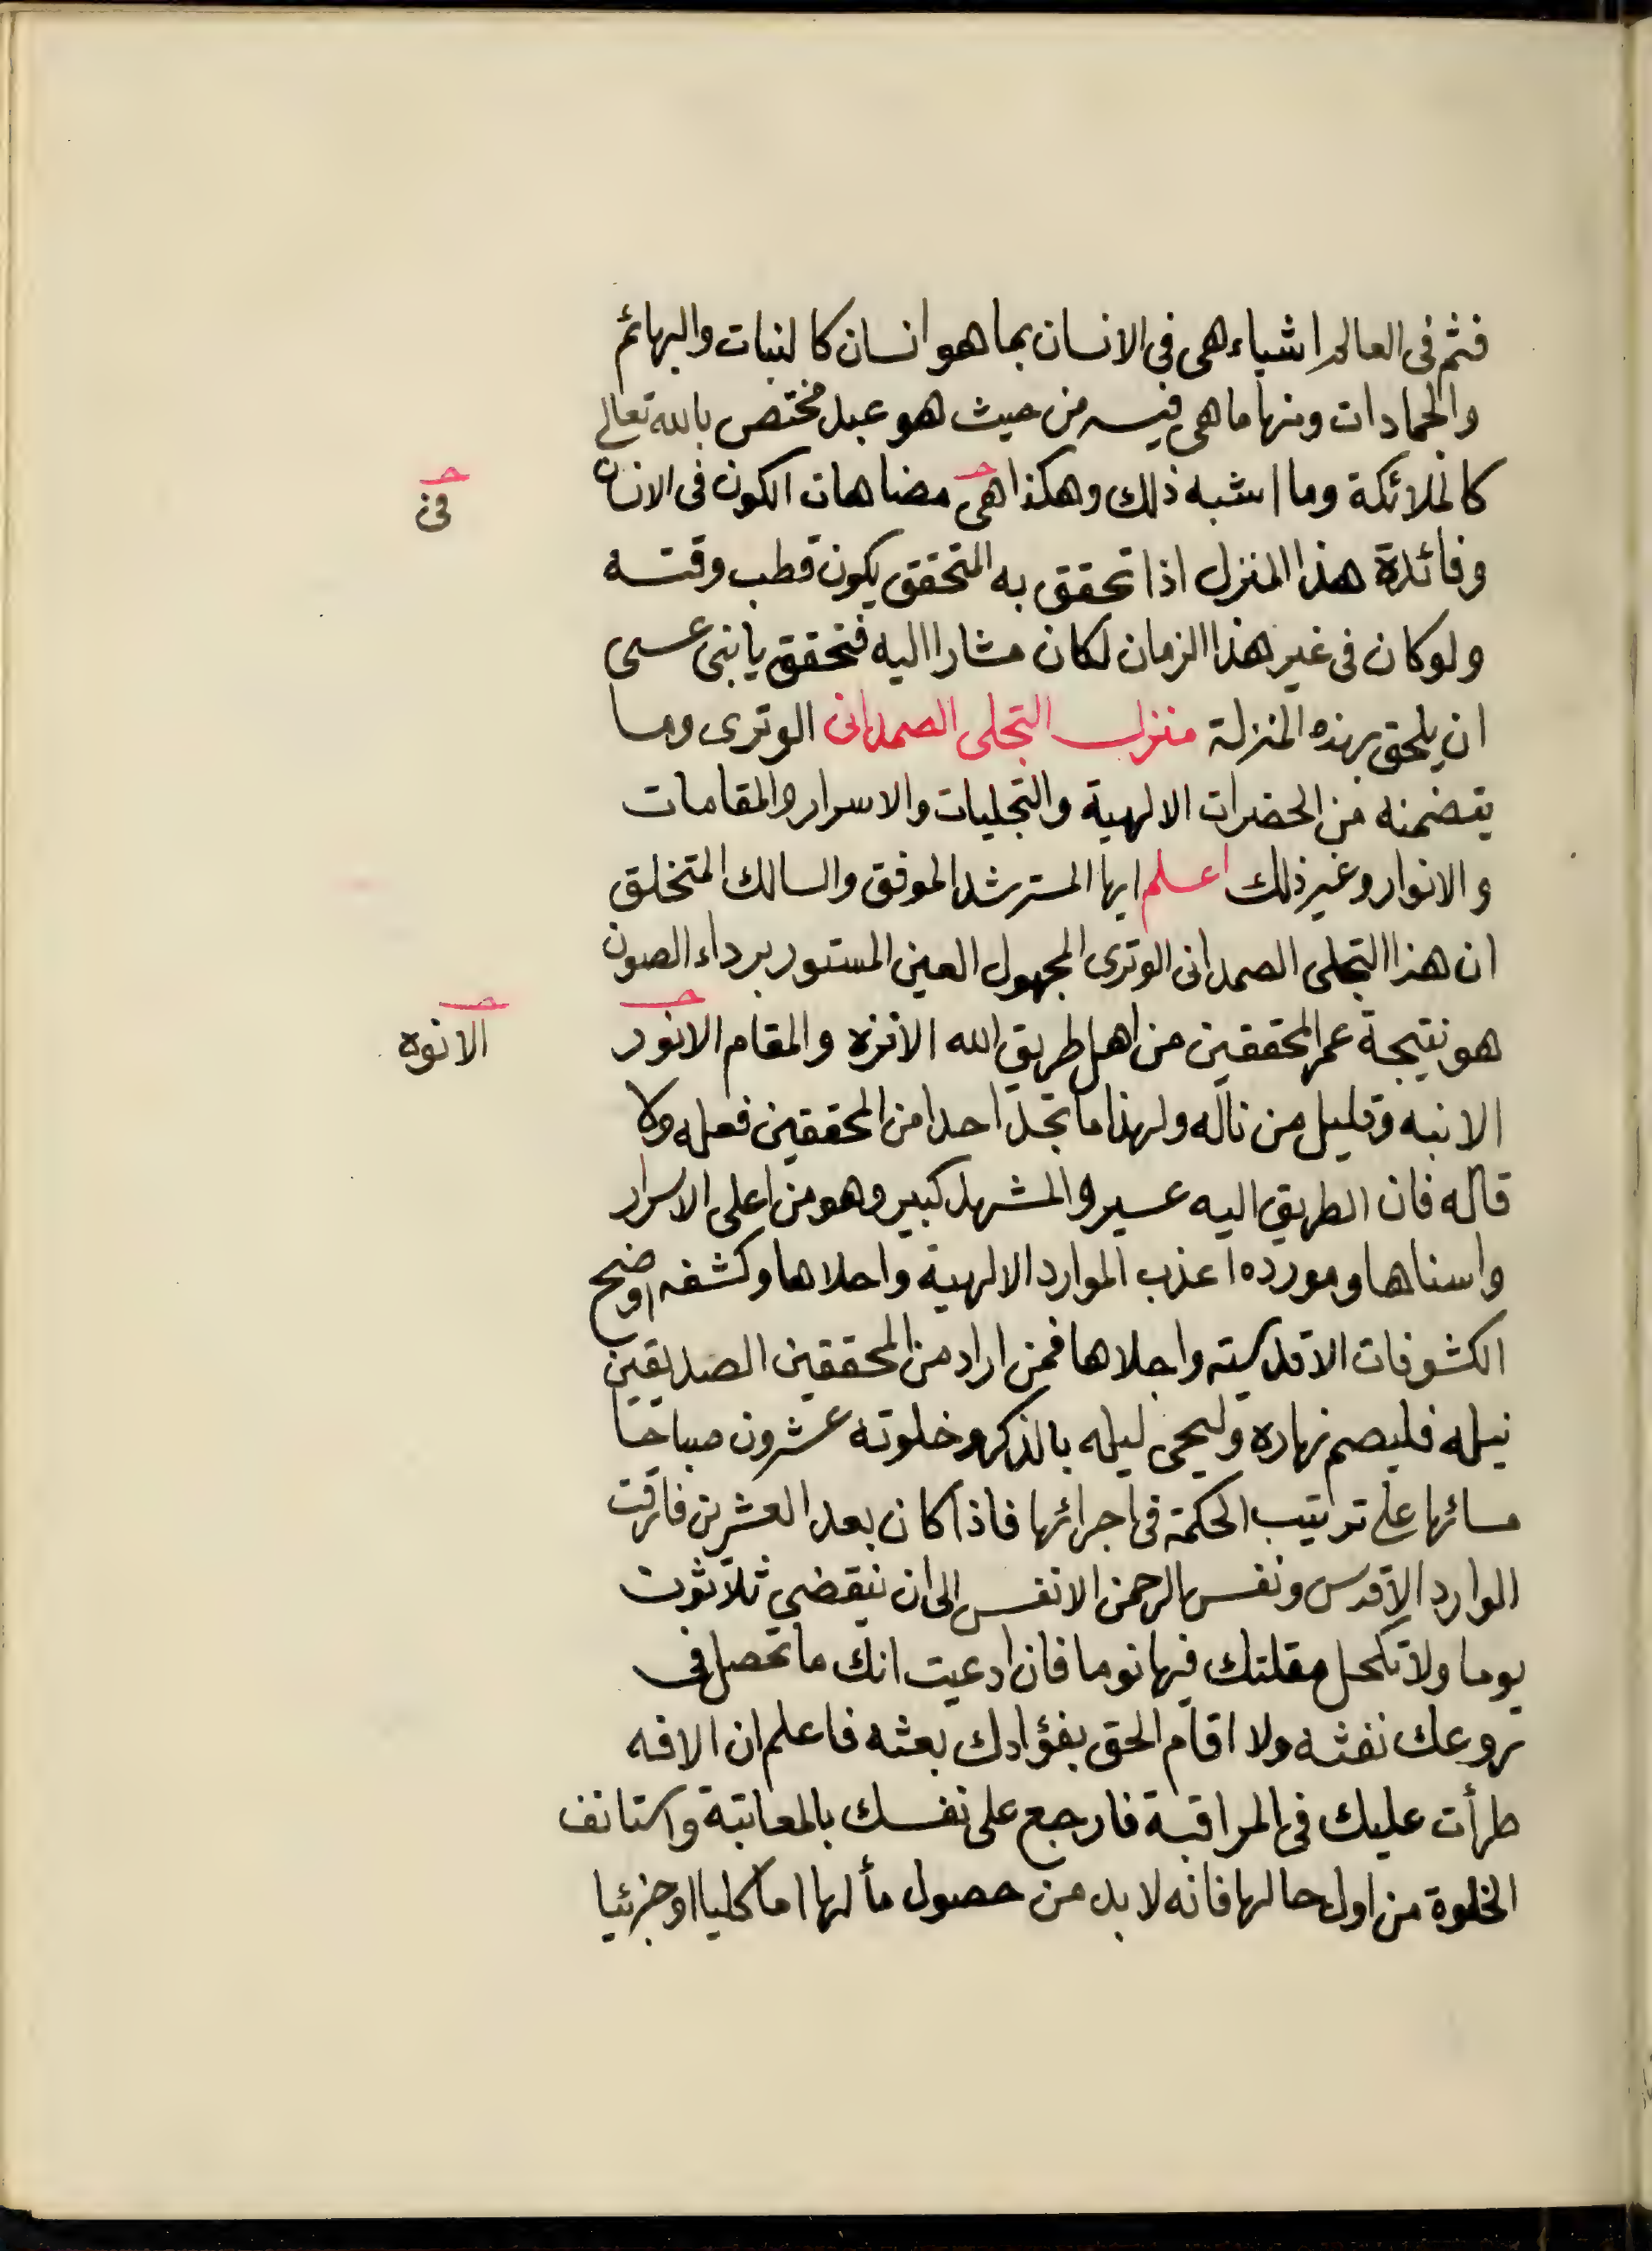 فثم فى العالم اشياء هى فى الانسان بما هو انسان كالنبات والبهائم
والجمادات ومنها ما هى فيه من حيث هو عبد مختص بالله تعالى
كالملائكة وما اشبه ذلك وهكذا هى مضاهات الكون فى الانسان
فى
وفائدة هذا المنزل اذا تحقق به المتحقق يكون قطب وقته
ولو كان فى غير هذا الزمان لكان مشارا اليه فتحقق يا نبى عسى
ان يلحق بهذه المنزلة منزل التجلى الصمدانى الوترى وما
يتضمنه من الحضرات الالهية والتجليات والاسرار والمقامات
والانوار وغير ذلك اعلم ايها المسترشد الموفق والسالك المتخلق
ان هذا التجلى الصمدانى الوترى المجهول العين المستور برداء الصون
هو نتيجة عمر المحققين من اهل طريق الله الانزه والمقام الانور
الانوه
الانبه وقليل من ناله ولهذا ما تجد احدا من المحققين فعله ولا
قاله فان الطريق اليه عسير والمشهد كبير وهو من اعلى الاسرار
واسناها ومورده اعذب الموارد الالهية واحلاها وكشفه اوضح
الكشوفات الاقدسية واجلاها فمن اراد من المحققين الصديقين
نيله فليصم نهاره وليحى ليله بالذكر وخلوته عشرون صباحا
مسائها على ترتيب الحكمة فى اجرائها فاذا كان بعد العشرين فارقت
الوارد الاقدس ونفس الرحمن الانفس الى ان تنقضي ثلاثون
يوما ولا تكحل مقلتك فيها نوما فان ادعيت انك ما تحصل فى
روعك نفثه ولا اقام الحق بفؤادك بعثه فاعلم ان الافه
طرأت عليك فى المراقبة فارجع على نفسك بالمعاتبة واستانف
الخلوة من اول حالها فانه لا بد من حصول مألها اما كليا او جزئيا